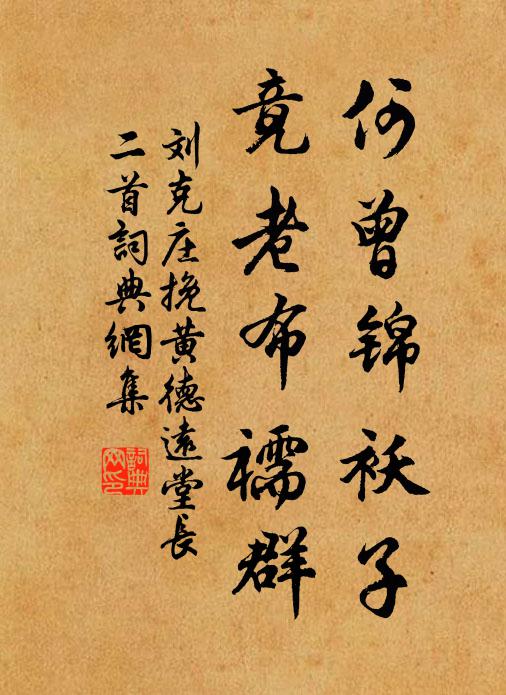 何曾锦袄子
竟老布襦群
刘克庄挽黄德远堂长
二首詞典網集
詞典網印